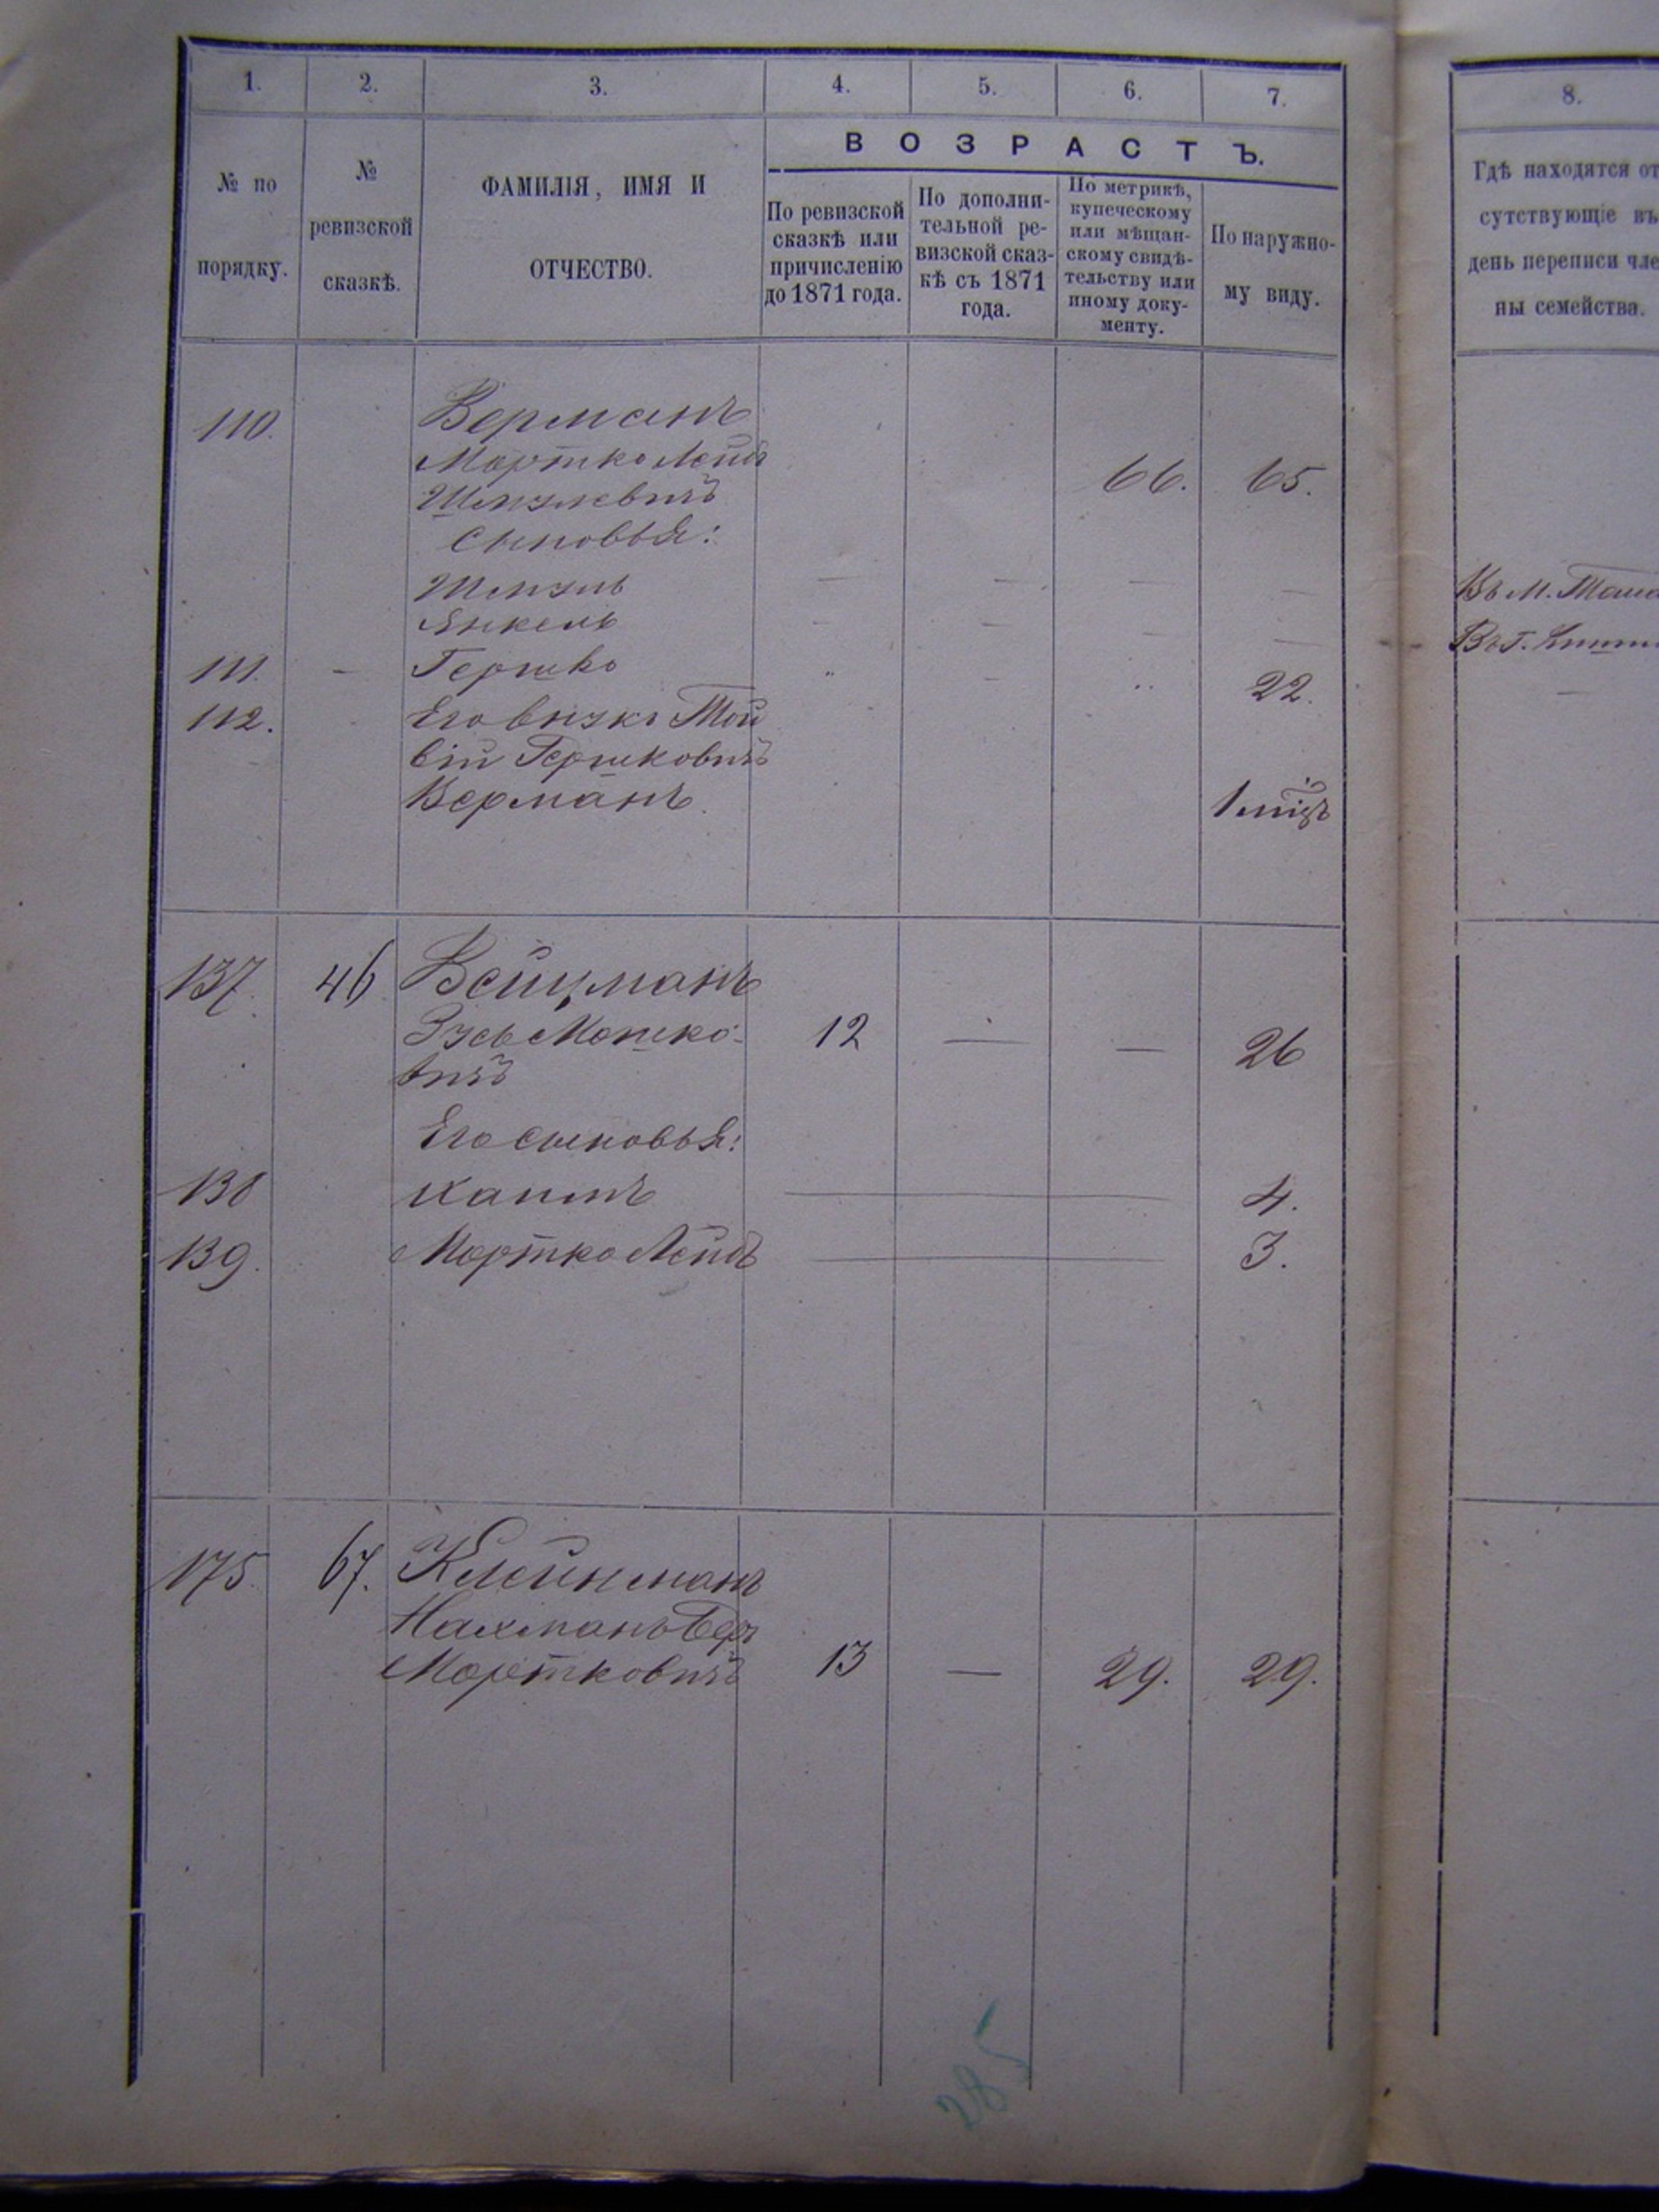 1. 2. 3. 4. 5. 6. 7. 8.
№ по порядку.
№ ревизской сказкѣ.
ФАМИЛІЯ, ИМЯ И ОТЧЕСТВО.
ВОЗРАСТЪ.
По ревизской
сказкѣ или
причисленію
до 1871 года.
По дополни-
тельной ре-
визской сказ-
кѣ съ 1871
года.
По метрикѣ,
купеческому
или мѣщан-
скому свидѣ-
тельству или
иному доку-
менту.
По наружно-
му виду.
Гдѣ находятся от
сутствующіе въ
день переписи чле
ны семейства.
110. Верманъ
Мортко Лейбъ
Шмулевичъ 66. 65.
Сыновья:
Шмуль — — — — Въ М.
Янкель — — — — Въ Г.
111. — Гершко 22.
112. Его внукъ Той
вій Гершковичъ
Верманъ. 1 мѣц.
137. 46 Вейцманъ
Зусь Мошко- 12 — — 26
вичъ
Его сыновья:
138 Хаимъ 4.
139. Мортко Лейбъ 3.
175. 67. Клейнманъ
Нахманъ Беръ
Мортковичъ 13 — 29. 29.
285